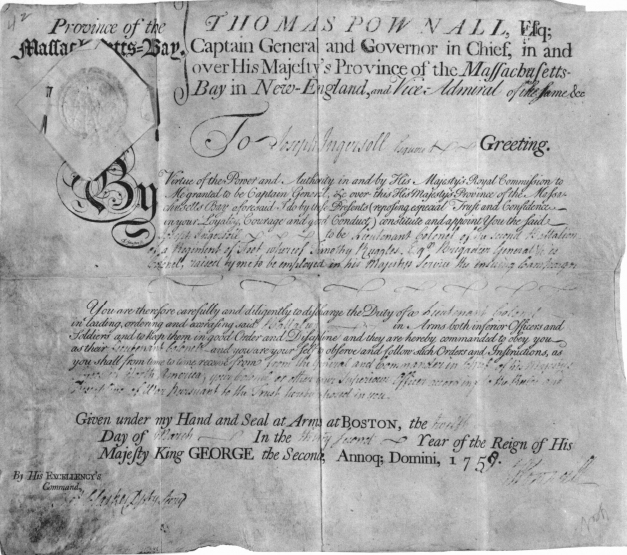 Province of the
Massachusetts-Bay,
THOMAS POWNALL, Esq;
Captain General and Governor in Chief, in and
over His Majesty's Province of the Massachusetts-
Bay in New-England, and Vice-Admiral of the same &c
To Joseph Ingersoll Esquire Greeting.
By Virtue of the Power and Authority in and by His Majesty's Royal Commission to
Me granted to be Captain General &c over this His Majesty's Province of the Massa-
chusetts Bay aforesaid I do by these Presents (reposing especial Trust and Confidence
in your Loyalty, Courage and good Conduct,) constitute and appoint You the said
Joseph Ingersoll to be Lieutenant Colonel of the second Battalion
of a Regiment of Foot whereof Timothy Ruggles Esqr. Brigadier General is
Colonel, raised by me to be employed in his Majestys Service the ensuing Campaign
You are therefore carefully and diligently to discharge the Duty of a Lieutenant Colonel
in leading, ordering and exercising said Battalion in Arms both inferior Officers and
Soldiers and to keep them in good Order and Discipline and they are hereby commanded to obey you
as their Lieutenant Colonel and you are your Self to observe and follow such Orders and Instructions, as
you shall from time to time receive from the General and Commander in Chief of his Majestys
Forces in North America, your Colonel or other your Superiour Officers according to the Rules and
Discipline of War pursuant to the Trust hereby reposed in you.
Given under my Hand and Seal at Arms at BOSTON, the twelfth
Day of March In the thirty second Year of the Reign of His
Majesty King GEORGE the Second, Annoq; Domini, 1759.
By His EXCELLENCY'S
Command,
TPownall